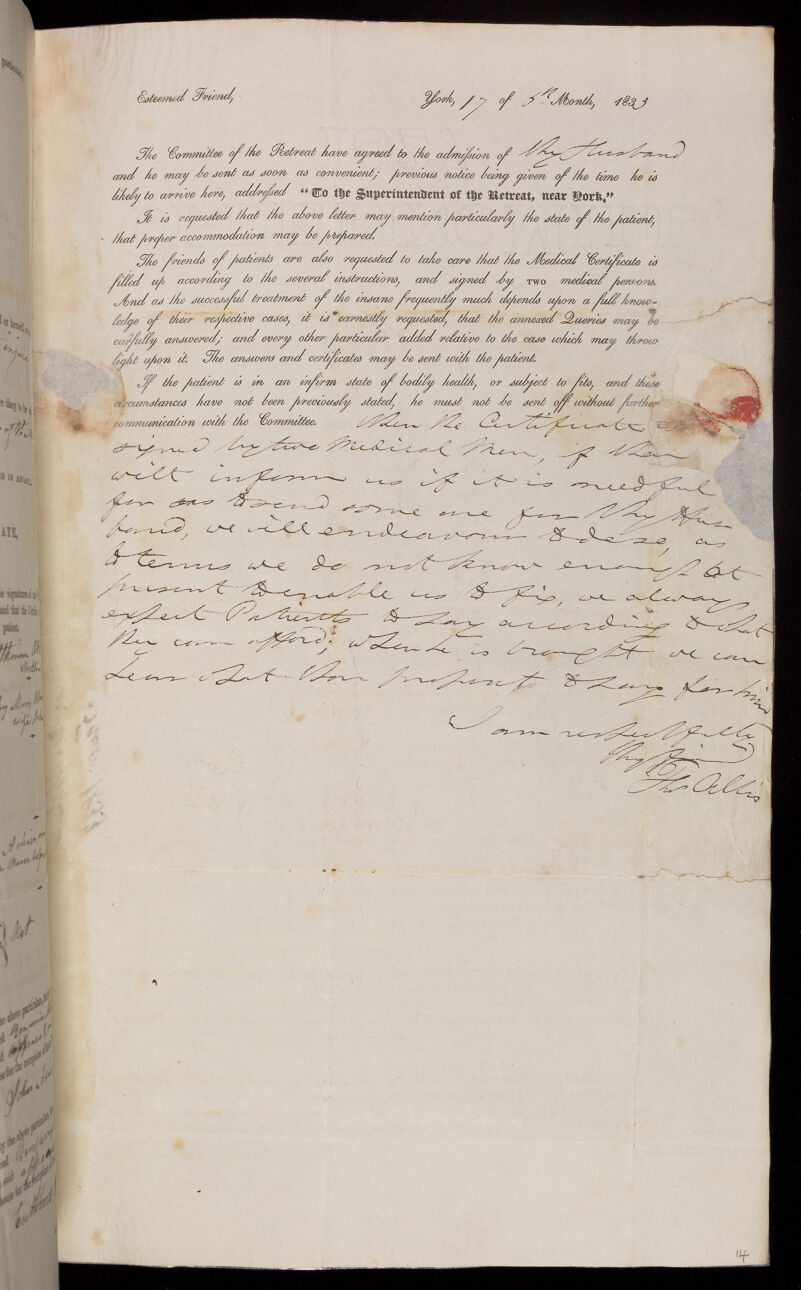 Esteemed Friend,
York, 17 of 5th Month, 1833
The Committee of the Retreat have agreed to the admission of thy Husband
and he may be sent as soon as convenient; previous notice being given of the time he is
likely to arrive here, addressed "To the Superintendent of the Retreat, near York."
It is requested that the above letter may mention particularly the state of the patient,
that proper accommodation may be prepared.
The friends of patients are also requested to take care that the Medical Certificate is
filled up according to the several instructions, and signed by TWO medical persons.
And as the successful treatment of the insane frequently much depends upon a full know-
ledge of their respective cases, it is earnestly requested, that the annexed Queries may be
carefully answered; and every other particular added relative to the case which may throw
light upon it. The answers and certificates may be sent with the patient.
If the patient is in an infirm state of bodily health, or subject to fits, and these
circumstances have not been previously stated, he must not be sent off without further
communication with the Committee. When the Certificate
signed by two Medical Men, if thou
wilt inform us if it is needful
for us to send some one for thy Hus
band, we will endeavour to do so, as
to terms we do not know enough at
present to enable us to fix, we always
expect Patients to pay according to what
they can afford; when he is brought we can
hear what thou proposest to pay for him
I am respectfully
thy
Thos Allis
14